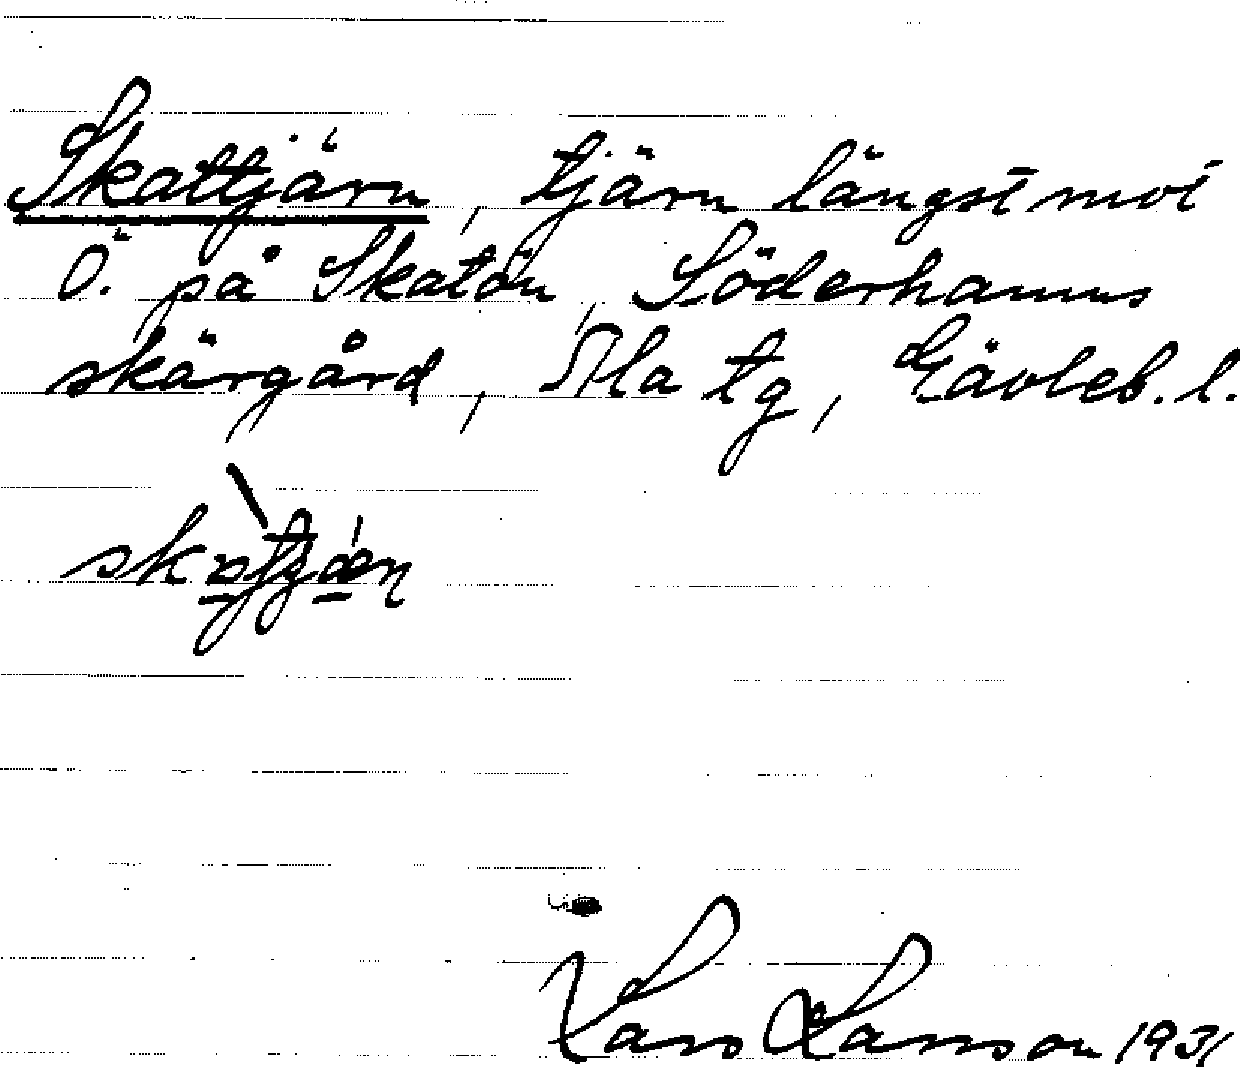 Skattjärn, tjärn längst mot
Ö. på Skatön, Söderhamns
skärgård, Ala tg, Gävleb. l.
Lars Larsson 1931